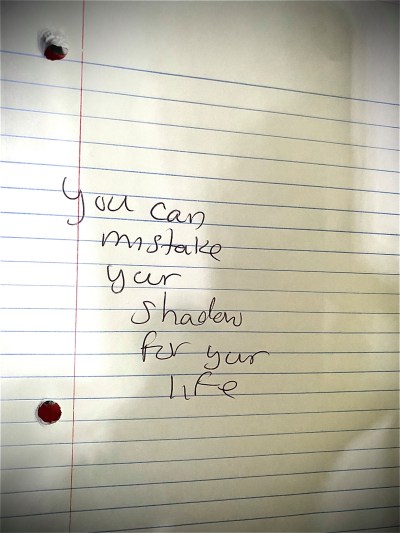 you can
mistake
your
shadow
for your
life